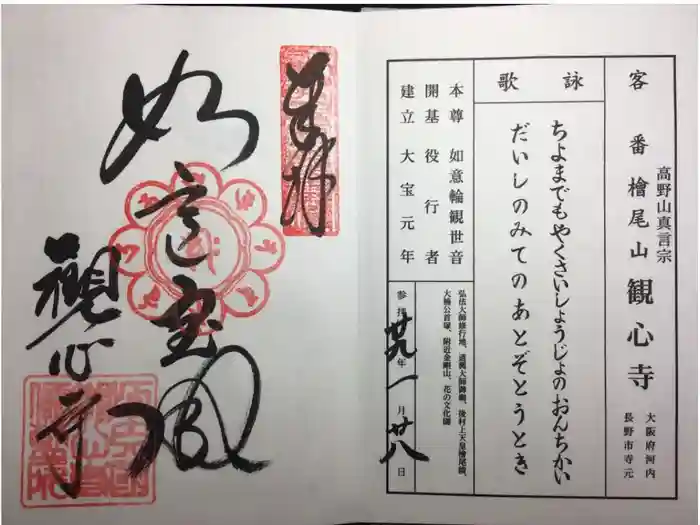 高野山真言宗
客番 檜尾山 観心寺
大阪府河内
長野市寺元
詠歌
ちよまでもやくさいしょうじょのおんちかい
だいしのみてのあとぞとうとき
本尊 如意輪観世音
開基 役行者
建立 大宝元年
弘法大師修行地、道興大師御廟、後村上天皇檜尾陵、
大楠公首塚、附近金剛山、花の文化園
参拝 廿九年 一月 廿八日
奉拝
如意宝
觀心寺